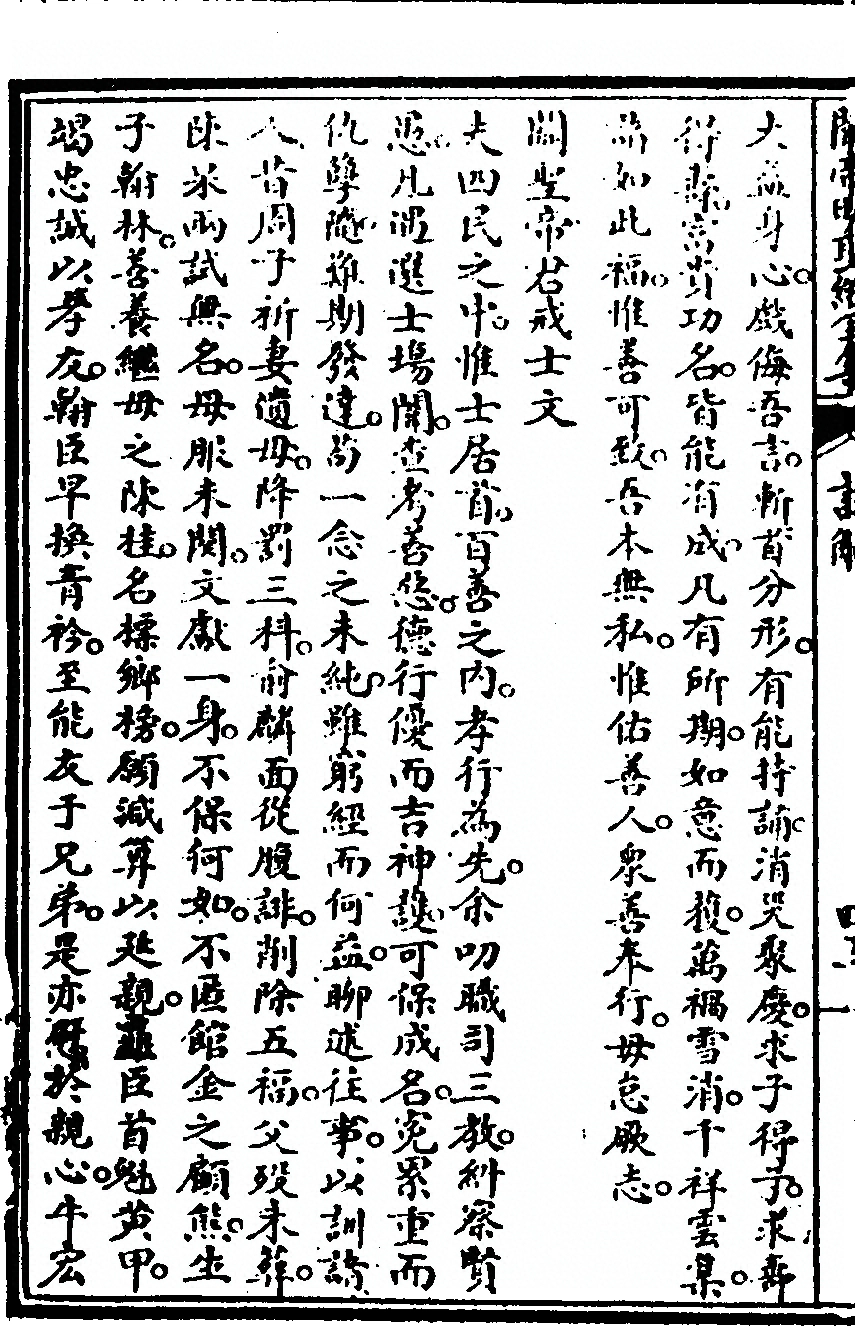 大益身心。戲侮吾言。斬首分形。有能持誦。消災聚慶。求子得子。求壽
得壽。富貴功名。皆能有成。凡有所期。如意而獲。萬禍雪消。千祥雲集。
諸如此福。惟善可致。吾本無私。惟佑善人。眾善奉行。毋怠厥志。
關聖帝君戒士文
夫四民之中。惟士居首。百善之內。孝行為先。余叨職司三教。糾察賢
愚。凡遇選士場開。查考善惡。德行優而吉神護。可保成名。冤累重而
仇孽隨。難期發達。苟一念之未純。雖窮經而何益。聊述往事。以訓諸
人。昔周子祈妻遺母。降罰三科。俞麟面從腹誹。削除五福。父歿未葬。
陳冰兩試無名。母服未闋。文獻一身不保。何如。不匿館金之顧熊。生
子翰林。善養繼母之陳桂。名標鄉榜。願減算以延親。臣首魁黃甲。
竭忠誠以孝友。翰臣早換青衿。至能友于兄弟。是亦慰於親心。牛宏